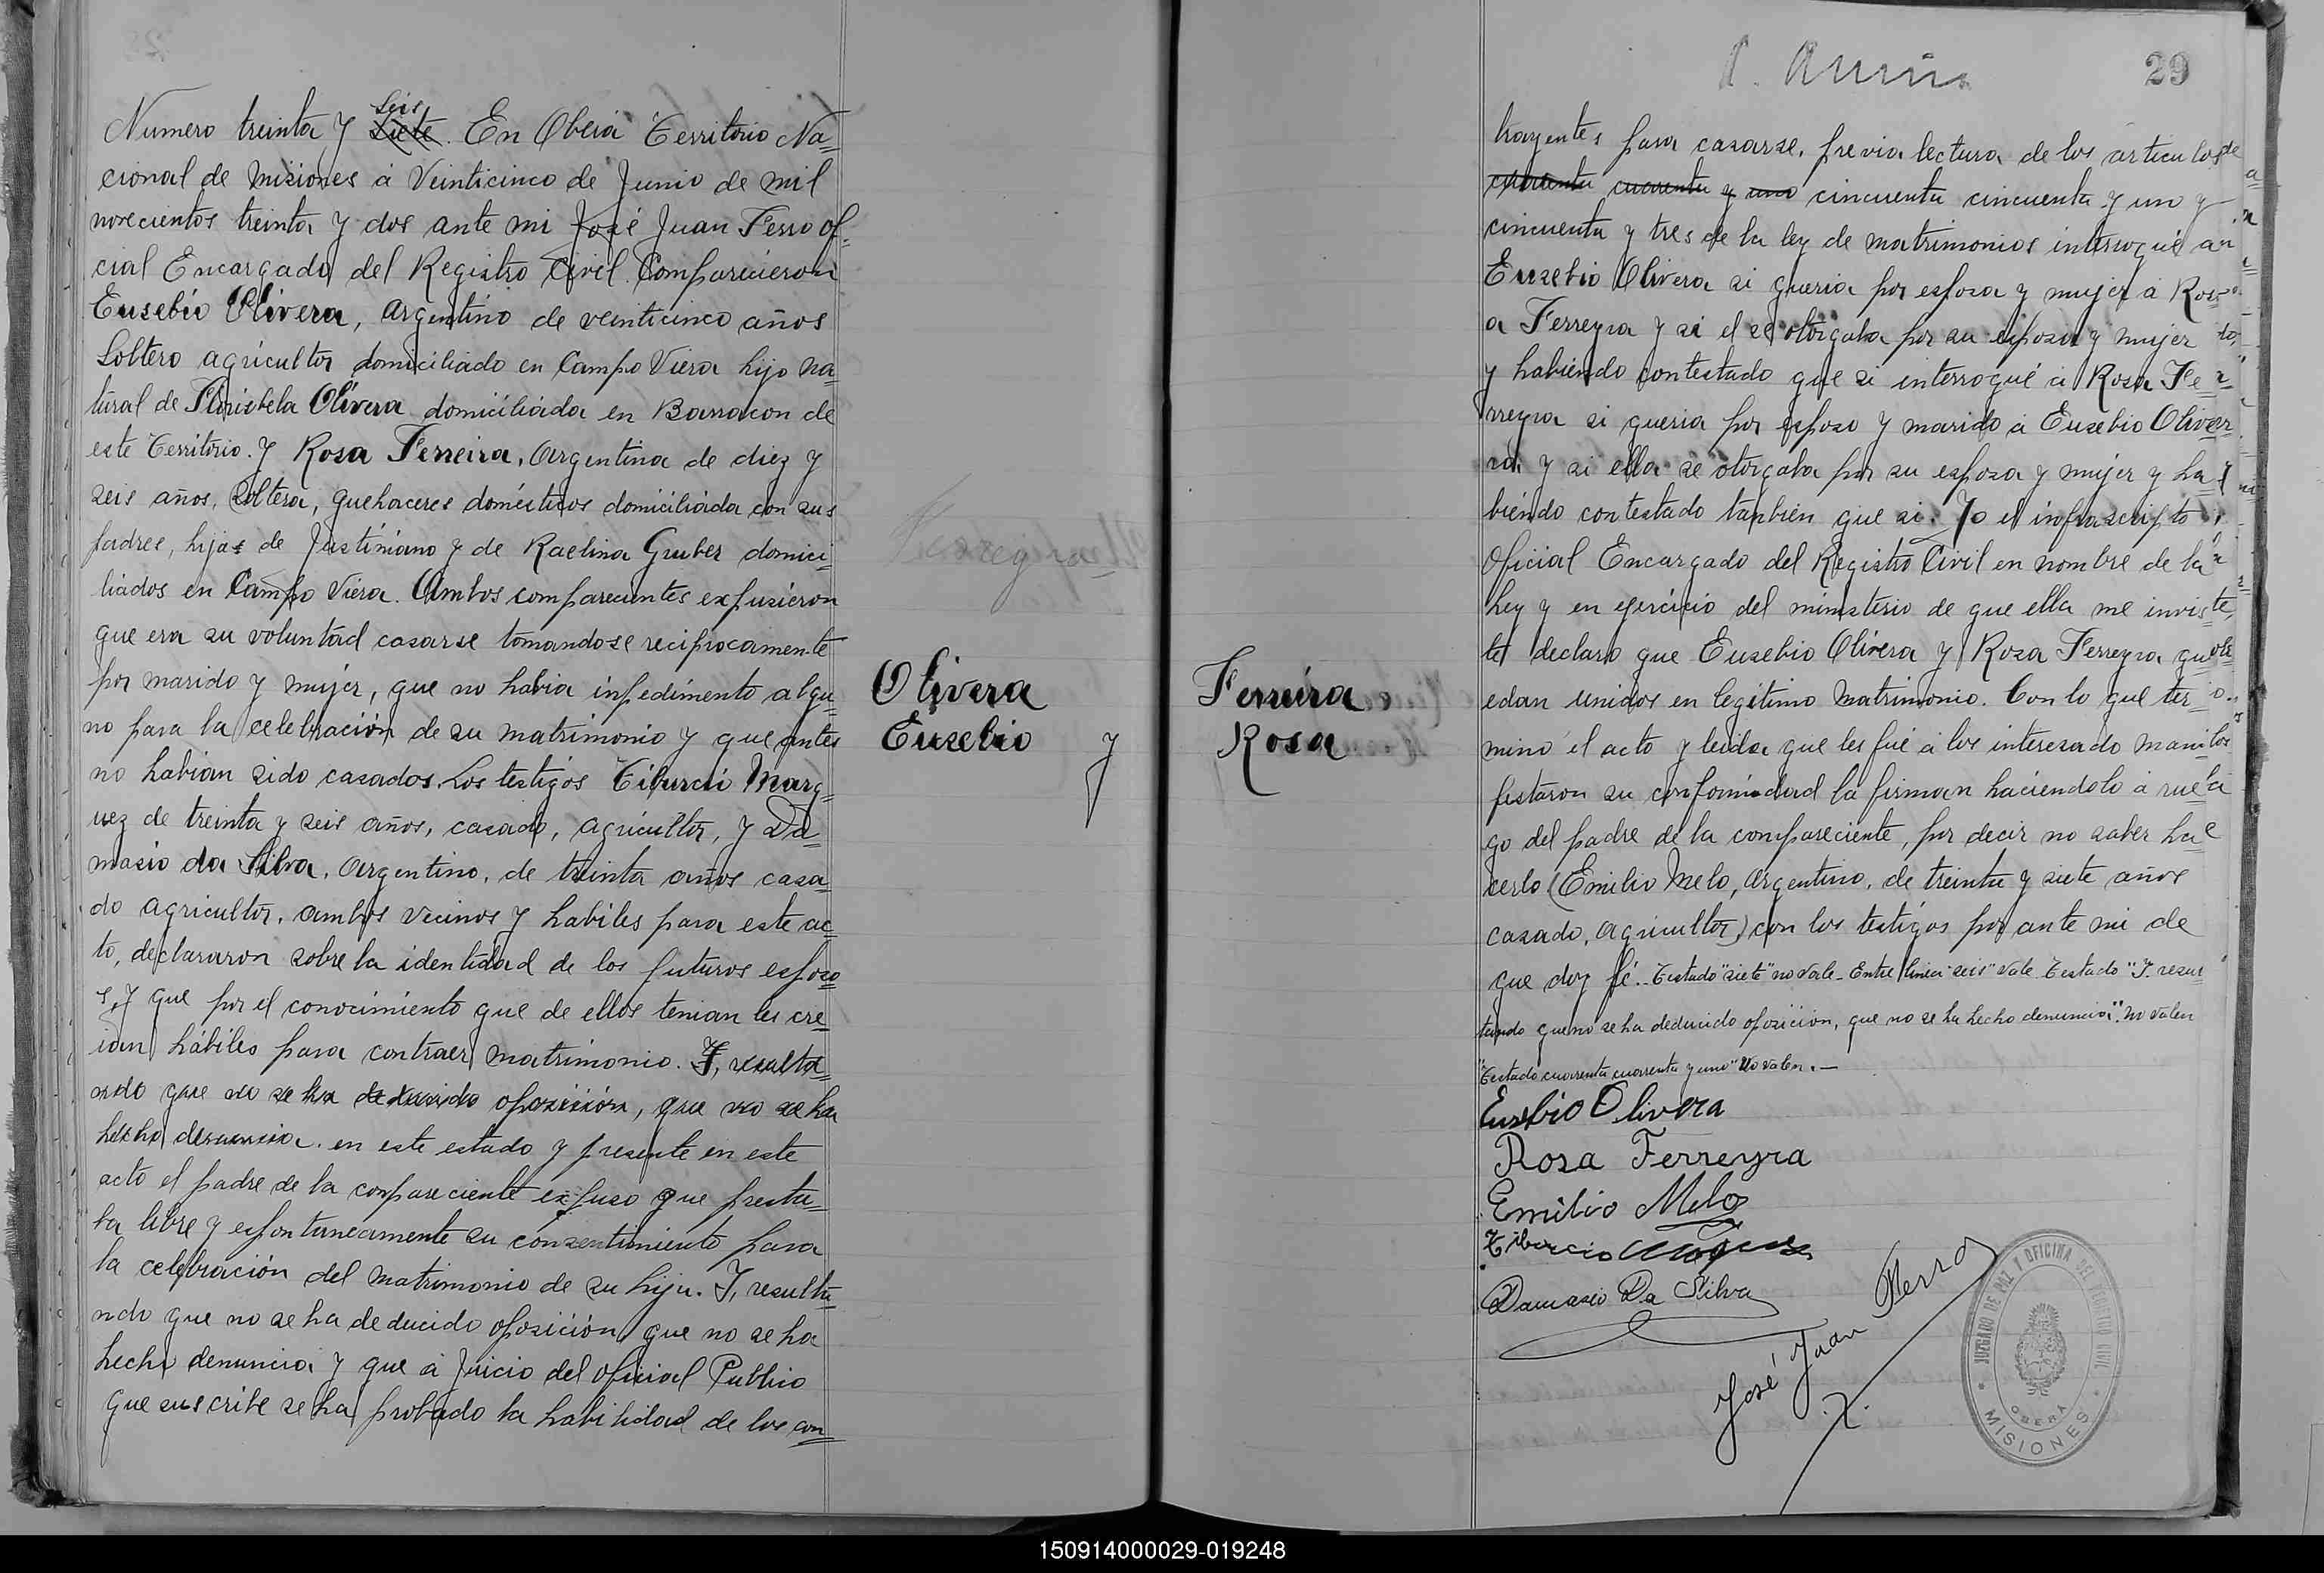 Numero treinta y Seis Siete. En Oberá Territorio Na=
cional de Misiones á Veinticinco de Junio de mil
novecientos treinta y dos ante mi José Juan Ferro Ofi=
cial Encargado del Registro Civil. Comparecieron
Eusebio Olivera, argentino de veinticinco años
Soltero agricultor domiciliado en Campo Viera hijo na=
tural de Florisbela Olivera domiciliada en Barracon de
este Territorio. Y Rosa Ferreira, Argentina de diez y
seis años, Soltera, quehaceres domésticos domiciliada con sus
padres, hija de Justiniano y de Raelina Gruber domici=
liados en Campo Viera. Ambos comparecientes expusieron
que era su voluntad casarse tomandose reciprocamente
por marido y mujer, que no habia inpedimento algu=
no para la celebración de su matrimonio y que antes
no habian sido casados. Los testigos Tiburcio Marq=
uez de treinta y seis años, casado, agricultor, y Da=
masio da Silva, Argentino, de treinta años casa=
do agricultor, ambos vecinos y habiles para este ac=
to, declararon sobre la identidad de los futuros esposo
s, y que por el conocimiento que de ellos tenian les cre=
ian hábiles para contraer matrimonio. Y, resulta=
ndo que no se ha deducido oposición, que no se ha
hecho denuncia. en este estado y presente en este
acto el padre de la conpareciente expuso que presta=
ba libre y espontaneamente su consentimiento para
la celebración del matrimonio de su hija. Y, resulta=
ndo que no se ha deducido oposición, que no se ha
hecho denuncia y que á juicio del Oficial Publico
que suscribe se ha probado la habilidad de los con=
Olivera
Eusebio y
Ferreira
Rosa
29
trayentes para casarse, previa lectura de los articulos de
cuarenta cuarenta y uno cincuenta cincuenta y un y
cincuenta y tres de la ley de matrimonios interrogué a
Eusebio Olivera si queria por esposa y mujer á Ros=
a Ferreyra y si el se otorgaba por su esposa y mujer
y habiendo contestado que si interrogué á Rosa Fe=
rreyra si queria por esposo y marido á Eusebio Oliver
ra y si ella se otorgaba por su esposa y mujer y ha
biendo contestado tanbien que si. Yo el infrascripto
Oficial Encargado del Registro Civil en nombre de la
Ley y en ejercicio del ministerio de que ella me invis=
te declaro que Eusebio Olivera y Rosa Ferreyra qu
edan unidos en legitimo Matrimonio. Con lo que ter=
minó el acto y leida que les fué á los interesado mani
festaron su conformidad la firman haciendolo á rue
go del padre de la compareciente, por decir no saber ha
cerlo (Emilio Melo, Argentino, de treinta y siete años
casado, Agricultor) con los testigos por ante mi de
que doy fé.- Testado "siete" no vale- Entre linea "seis" vale Testado "Y. resul
tando que no se ha deducido oposición, que no se ha hecho denuncia". No valen
"Testado cuarenta cuarenta y uno" No valen.-
Eusebio Olivera
Rosa Ferreyra
Emilio Melo
Tiburcio Marquez
Damasio Da Silva
José Juan Ferro
JUZGADO DE PAZ Y OFICINA DEL REGISTRO CIVIL
OBERÁ
MISIONES
150914000029-019248